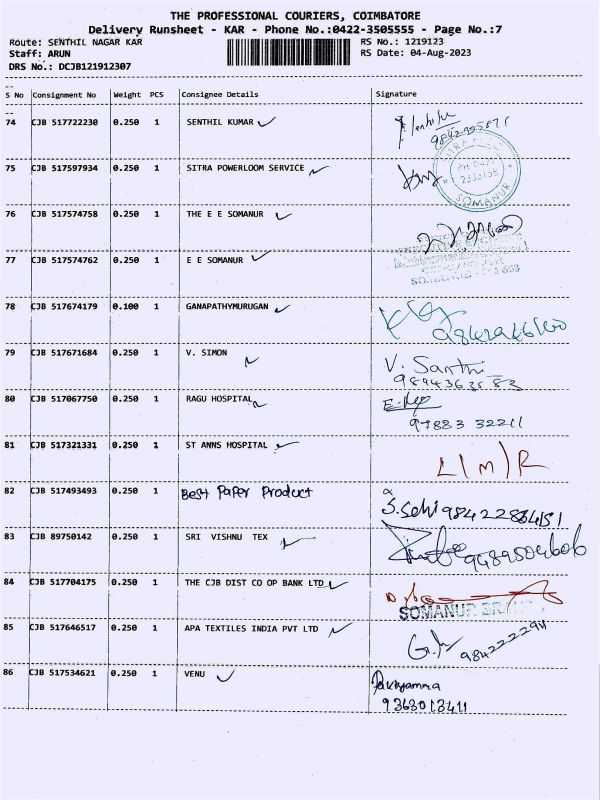 THE PROFESSIONAL COURIERS, COIMBATORE
Delivery Runsheet - KAR - Phone No.:0422-3505555 - Page No.:7
Route: SENTHIL NAGAR KAR
RS No.: 1219123
Staff: ARUN
RS Date: 04-Aug-2023
DRS No.: DCJB121912307
S No Consignment No Weight PCS Consignee Details Signature
74 CJB 517722230 0.250 1 SENTHIL KUMAR
75 CJB 517597934 0.250 1 SITRA POWERLOOM SERVICE
SOMANUR
76 CJB 517574758 0.250 1 THE E E SOMANUR
77 CJB 517574762 0.250 1 E E SOMANUR
78 CJB 517674179 0.100 1 GANAPATHYMURUGAN
79 CJB 517671684 0.250 1 V. SIMON
V. Santhi
80 CJB 517067750 0.250 1 RAGU HOSPITAL
81 CJB 517321331 0.250 1 ST ANNS HOSPITAL
L/M/R
82 CJB 517493493 0.250 1 Best Paper Product
83 CJB 89750142 0.250 1 SRI VISHNU TEX
84 CJB 517704175 0.250 1 THE CJB DIST CO OP BANK LTD
SOMANUR
85 CJB 517646517 0.250 1 APA TEXTILES INDIA PVT LTD
86 CJB 517534621 0.250 1 VENU
9363013411